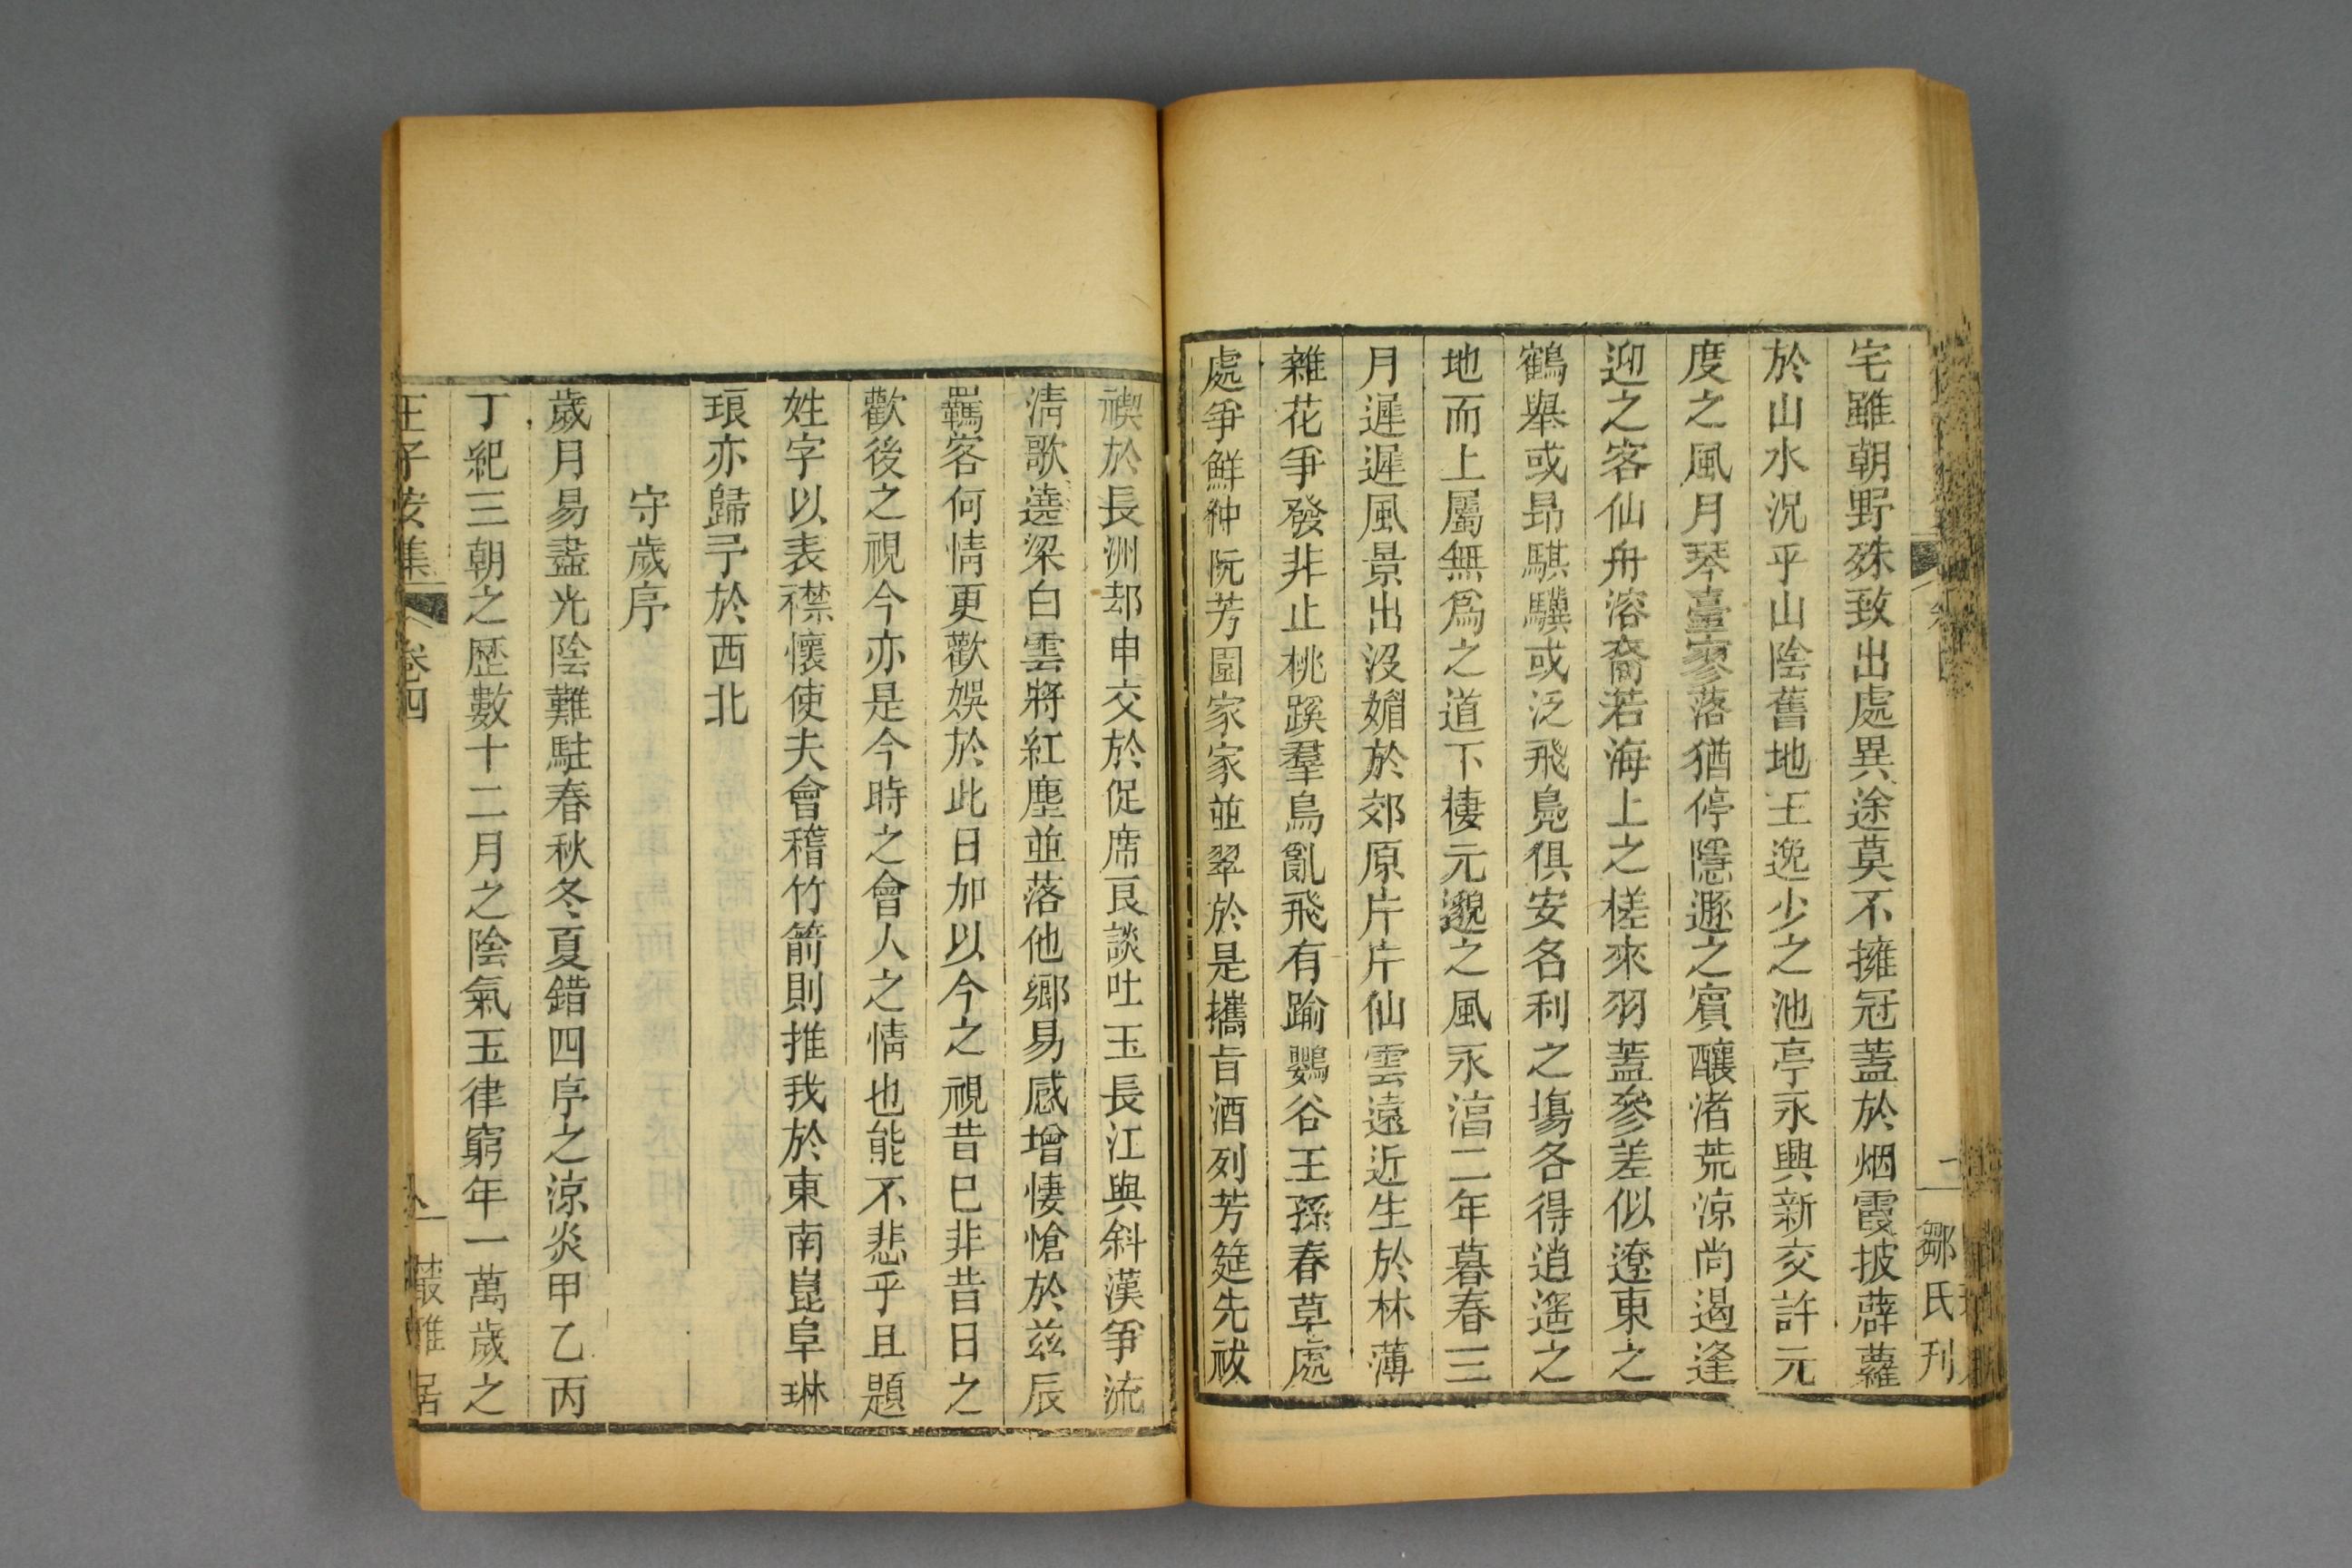 鄒氏刋
宅雖朝野殊致出處異途莫不擁冠蓋於烟霞披薜蘿
於山水況乎山陰舊地王逸少之池亭永興新交許元
度之風月琴臺寥落猶停隱遯之賓釀渚荒涼尚遏逢
迎之客仙舟溶裔若海上之槎來羽蓋參差似遼東之
鶴舉或昻騏驥或泛飛鳧俱安名利之塲各得逍遙之
地而上屬無爲之道下棲元邈之風永淳二年暮春三
月遲遲風景出沒媚於郊原片片仙雲遠近生於林薄
雜花爭發非止桃蹊羣鳥亂飛有踰鸚谷王孫春草處
處爭鮮仲阮芳園家家並翠於是攜旨酒列芳筵先祓
禊於長洲却申交於促席良談吐玉長江與斜漢爭流
淸歌遶梁白雲將紅塵並落他鄉易感增悽愴於兹辰
羈客何情更歡娛於此日加以今之視昔巳非昔日之
歡後之視今亦是今時之會人之情也能不悲乎且題
姓字以表襟懷使夫會稽竹箭則推我於東南崑阜琳
琅亦歸予於西北
守歲序
歲月易盡光陰難駐春秋冬夏錯四序之涼炎甲乙丙
丁紀三朝之歷數十二月之陰氣玉律窮年一萬歲之
王子安集 卷四 八 叢雅居